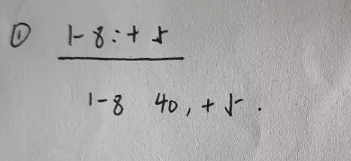 ① 1-8:+5
1-8 40,+5.